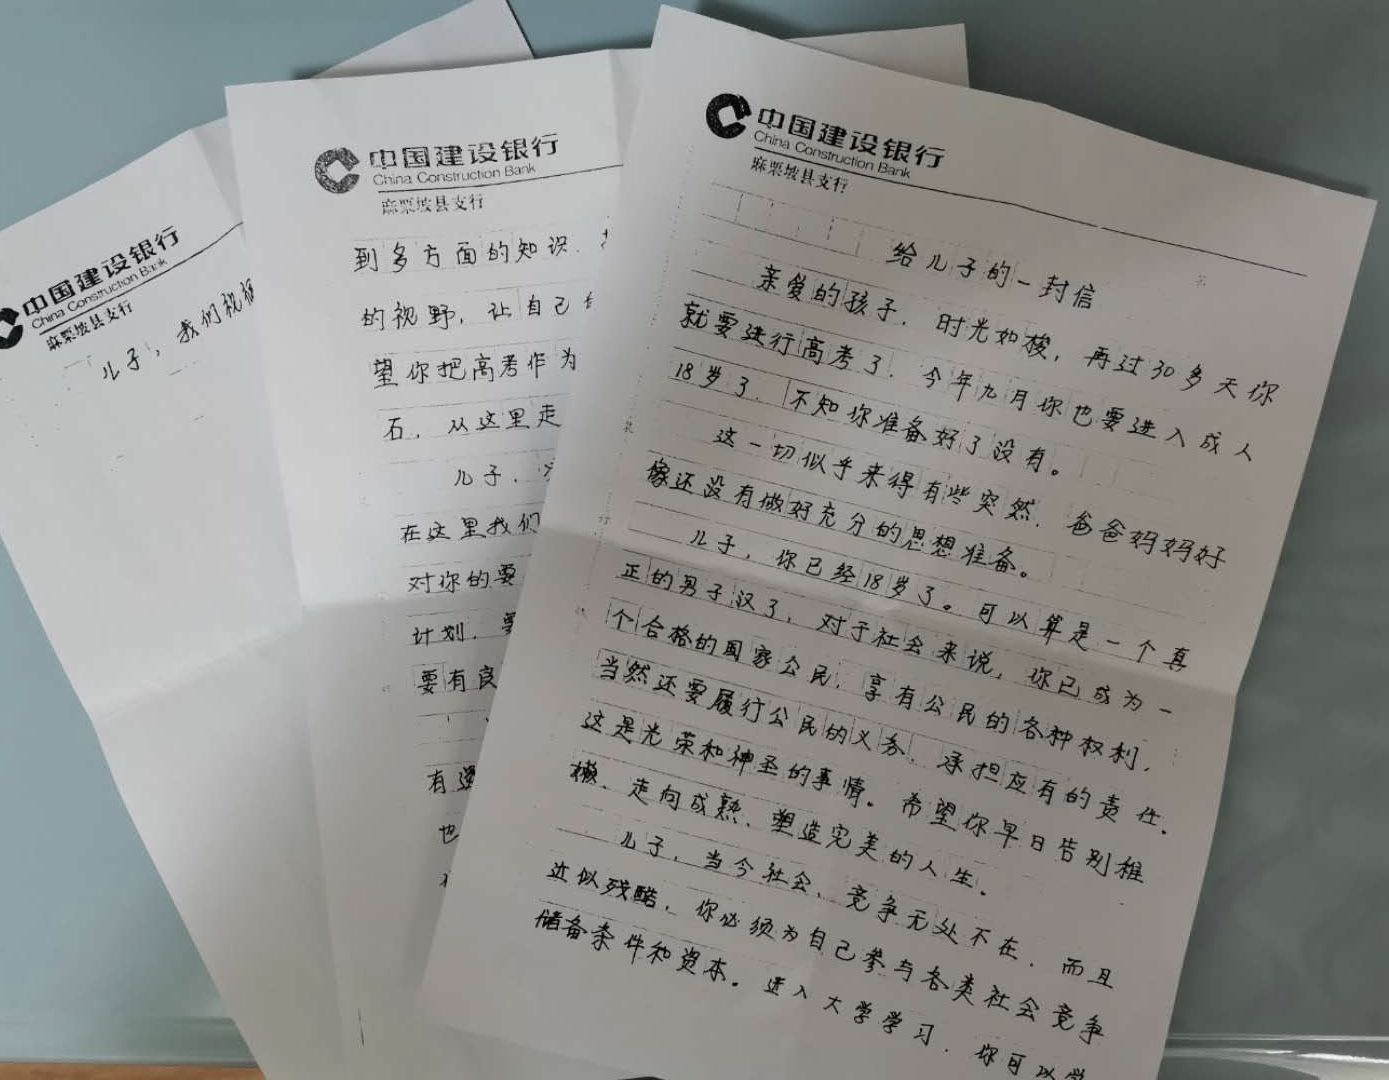 中国建设银行
China Construction Bank
麻栗坡县支行
给儿子的一封信
亲爱的孩子，时光如梭，再过30多天你
就要进行高考了，今年九月你也要进入成人
18岁了，不知你准备好了没有。
这一切似乎来得有些突然，爸爸妈妈好
像还没有做好充分的思想准备。
儿子，你已经18岁了。可以算是一个真
正的男子汉了，对于社会来说，你已成为一
个合格的国家公民，享有公民的各种权利，
当然还要履行公民的义务，承担应有的责任，
这是光荣和神圣的事情。希望你早日告别稚
嫩、走向成熟、塑造完美的人生。
儿子，当今社会，竞争无处不在，而且
近似残酷，你必须为自己参与各类社会竞争
储备条件和资本。进入大学学习，你可以学
中国建设银行
China Construction Bank
麻栗坡县支行
到多方面的知识，
的视野，让自己
望你把高考作为
石，从这里走
儿子，
在这里我们
对你的要
计划，要
要有良
有
也
中国建设银行
China Construction Bank
麻栗坡县支行
儿子，我们祝